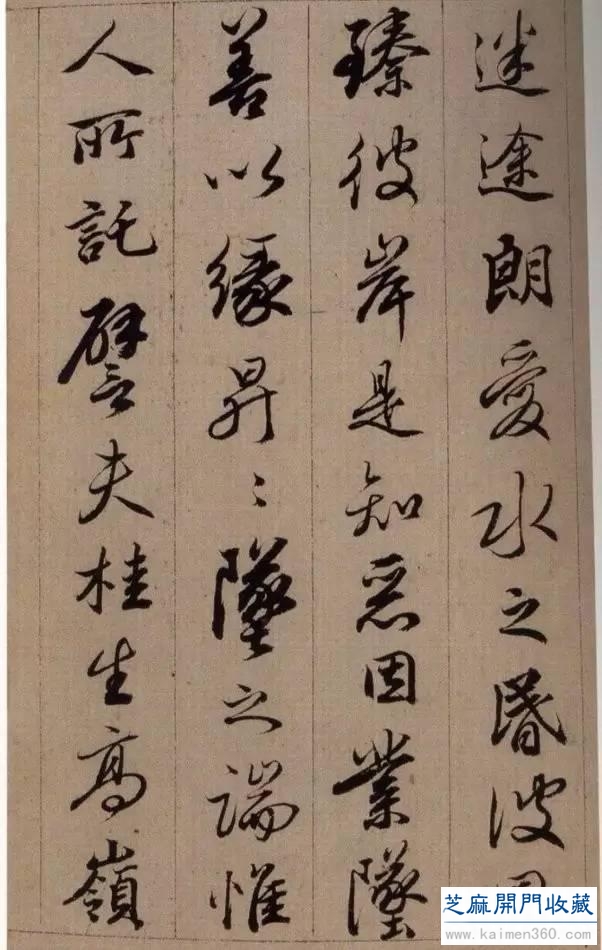 迷途朗愛水之昬波
臻彼岸是知惡因業墜
善以緣昇〻墜之端惟
人所託譬夫桂生高嶺
芝麻開門收藏
www.kaimen360.com